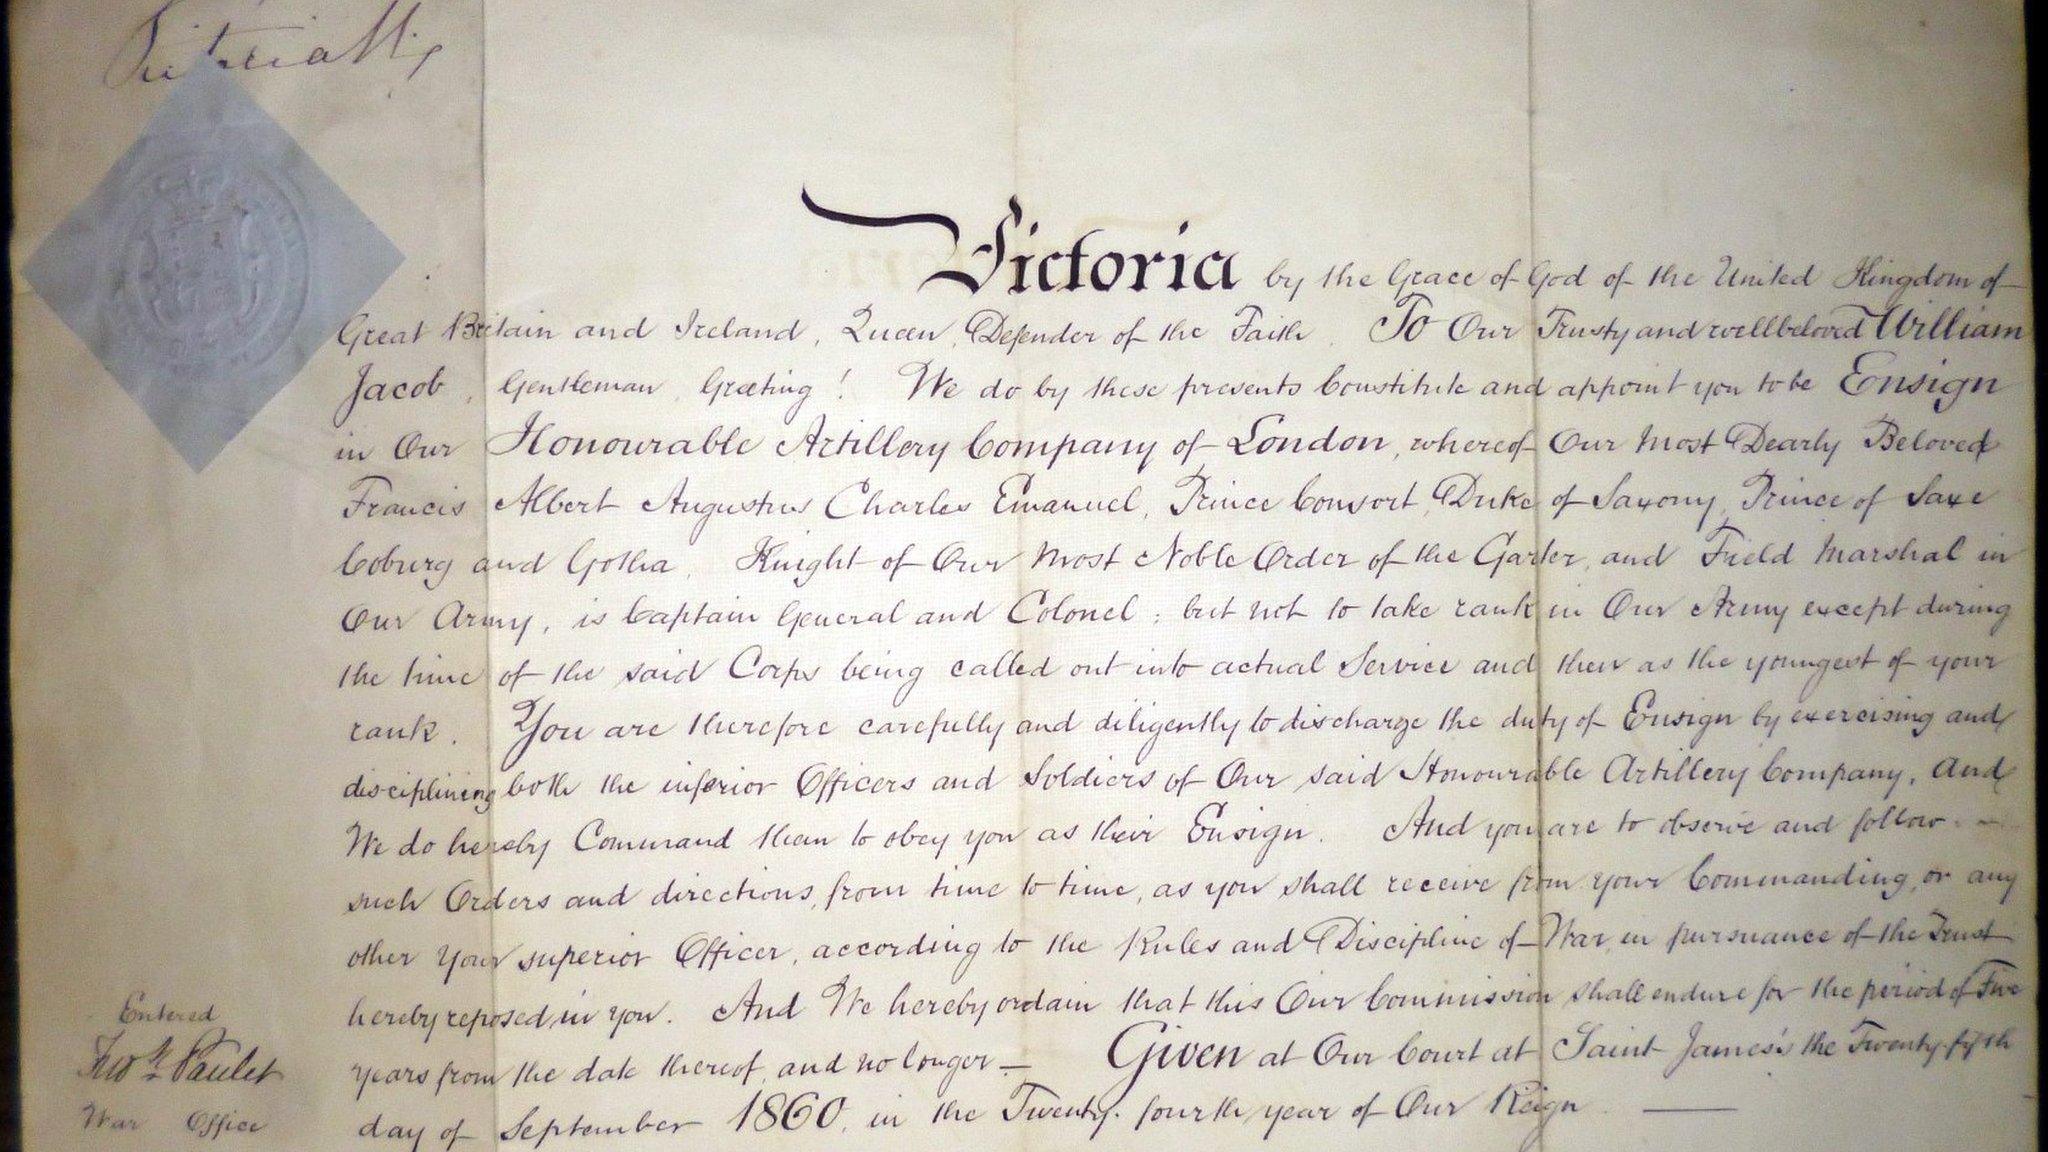 Victoria R
Victoria by the Grace of God of the United Kingdom of
Great Britain and Ireland, Queen, Defender of the Faith. To Our Trusty and wellbeloved William
Jacob, Gentleman, Greeting! We do by these presents Constitute and appoint you to be Ensign
in Our Honourable Artillery Company of London, whereof Our Most Dearly Beloved
Francis Albert Augustus Charles Emanuel, Prince Consort, Duke of Saxony, Prince of Saxe
Coburg and Gotha, Knight of Our Most Noble Order of the Garter, and Field Marshal in
Our Army, is Captain General and Colonel; but not to take rank in Our Army except during
the time of the said Corps being called out into actual Service and then as the youngest of your
rank. You are therefore carefully and diligently to discharge the duty of Ensign by exercising and
disciplining both the inferior Officers and Soldiers of Our said Honourable Artillery Company, And
We do hereby Command them to obey you as their Ensign. And you are to observe and follow
such Orders and directions, from time to time, as you shall receive from your Commanding, or any
other your superior Officer, according to the Rules and Discipline of War, in pursuance of the Trust
hereby reposed in you. And We hereby ordain that this Our Commission shall endure for the period of Five
years from the date thereof, and no longer — Given at Our Court at Saint James's the Twenty-fifth
day of September 1860, in the Twenty-fourth year of Our Reign
Entered
Paulet
War Office